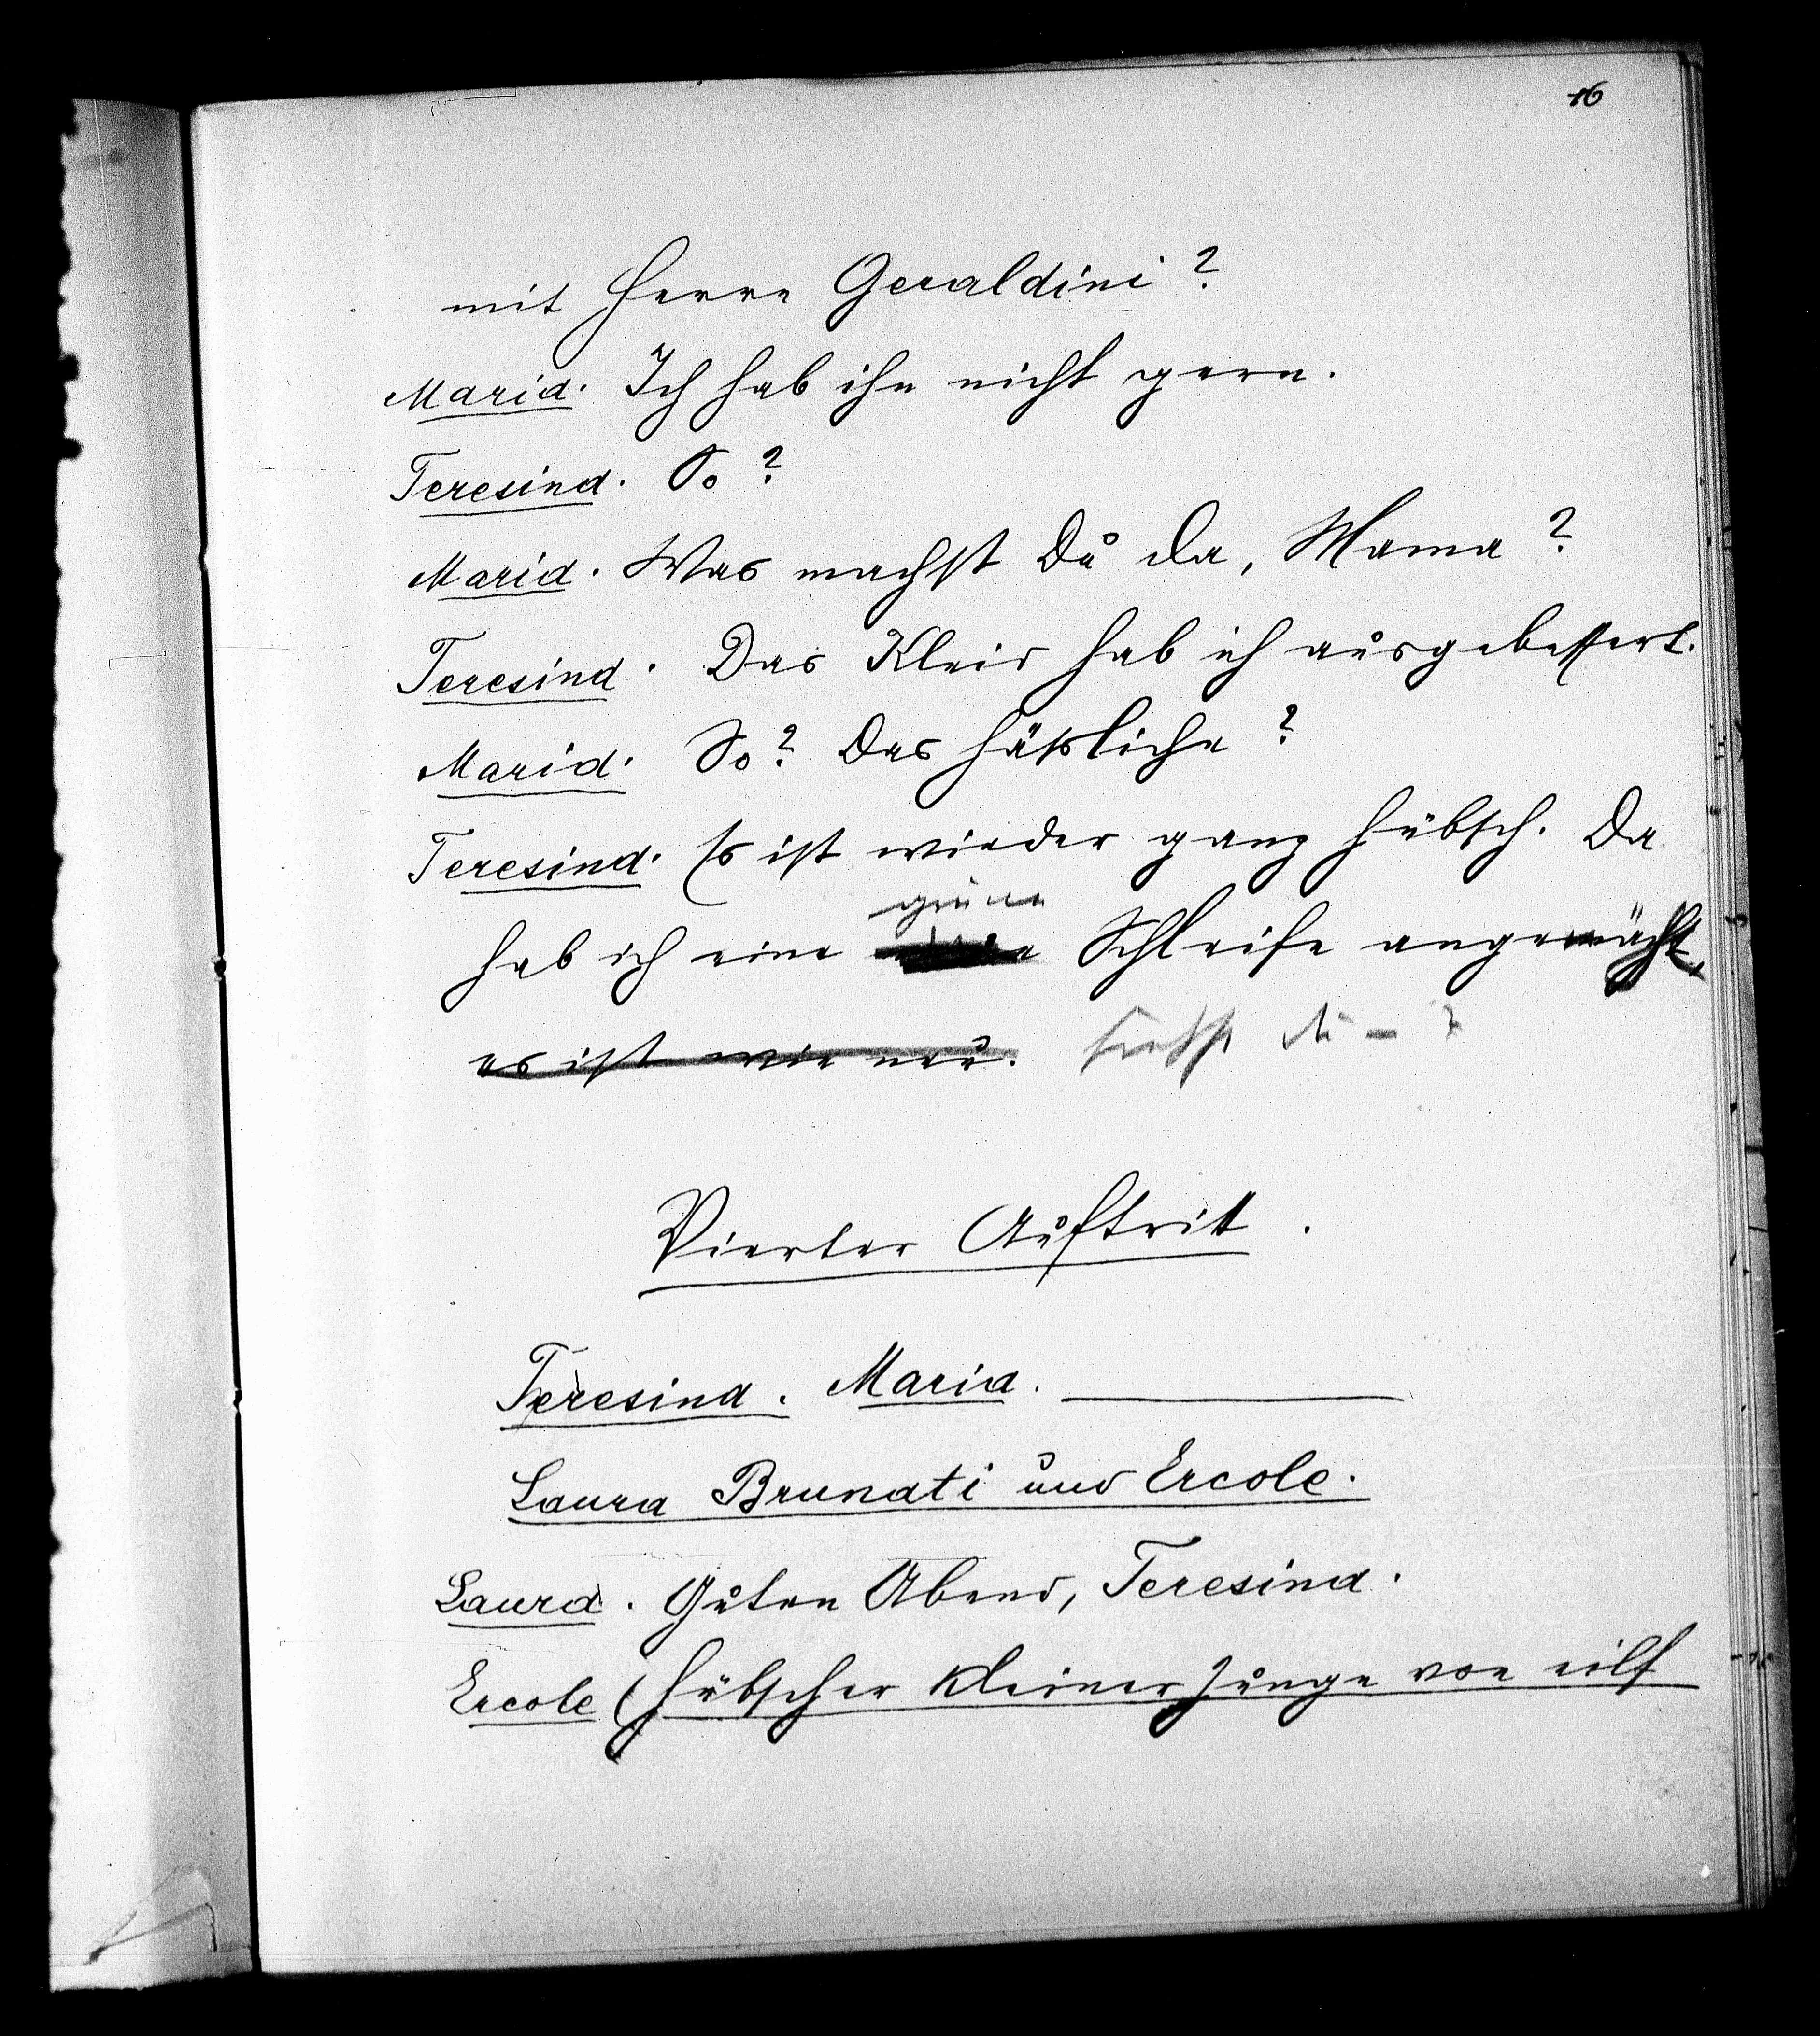 16
mit Herrn Geraldini?
Maria. Ich hab ihn nicht gern.
Teresina. So?
Maria. Was machst Du da, Mama?
Teresina. Das Kleid hab ich ausgebessert.
Maria. So? Das häßliche?
Teresina. Es ist wieder ganz hübsch. Da
grüne
hab ich eine Schleife angenäht,
es ist wie neu. siehst du – ?
Vierter Auftritt.
Teresina. Maria.
Laura Brunati und Ercole.
Laura. Guten Abend, Teresina.
Ercole (hübscher kleiner Junge von eilf